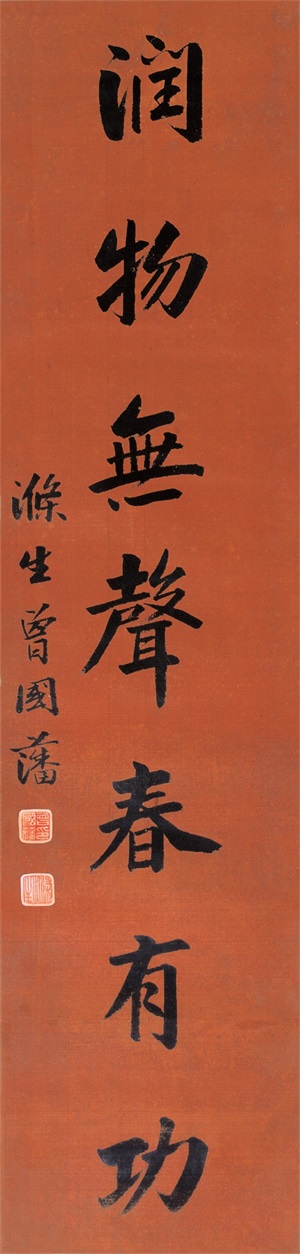 潤物無聲春有功
滌生曾國藩